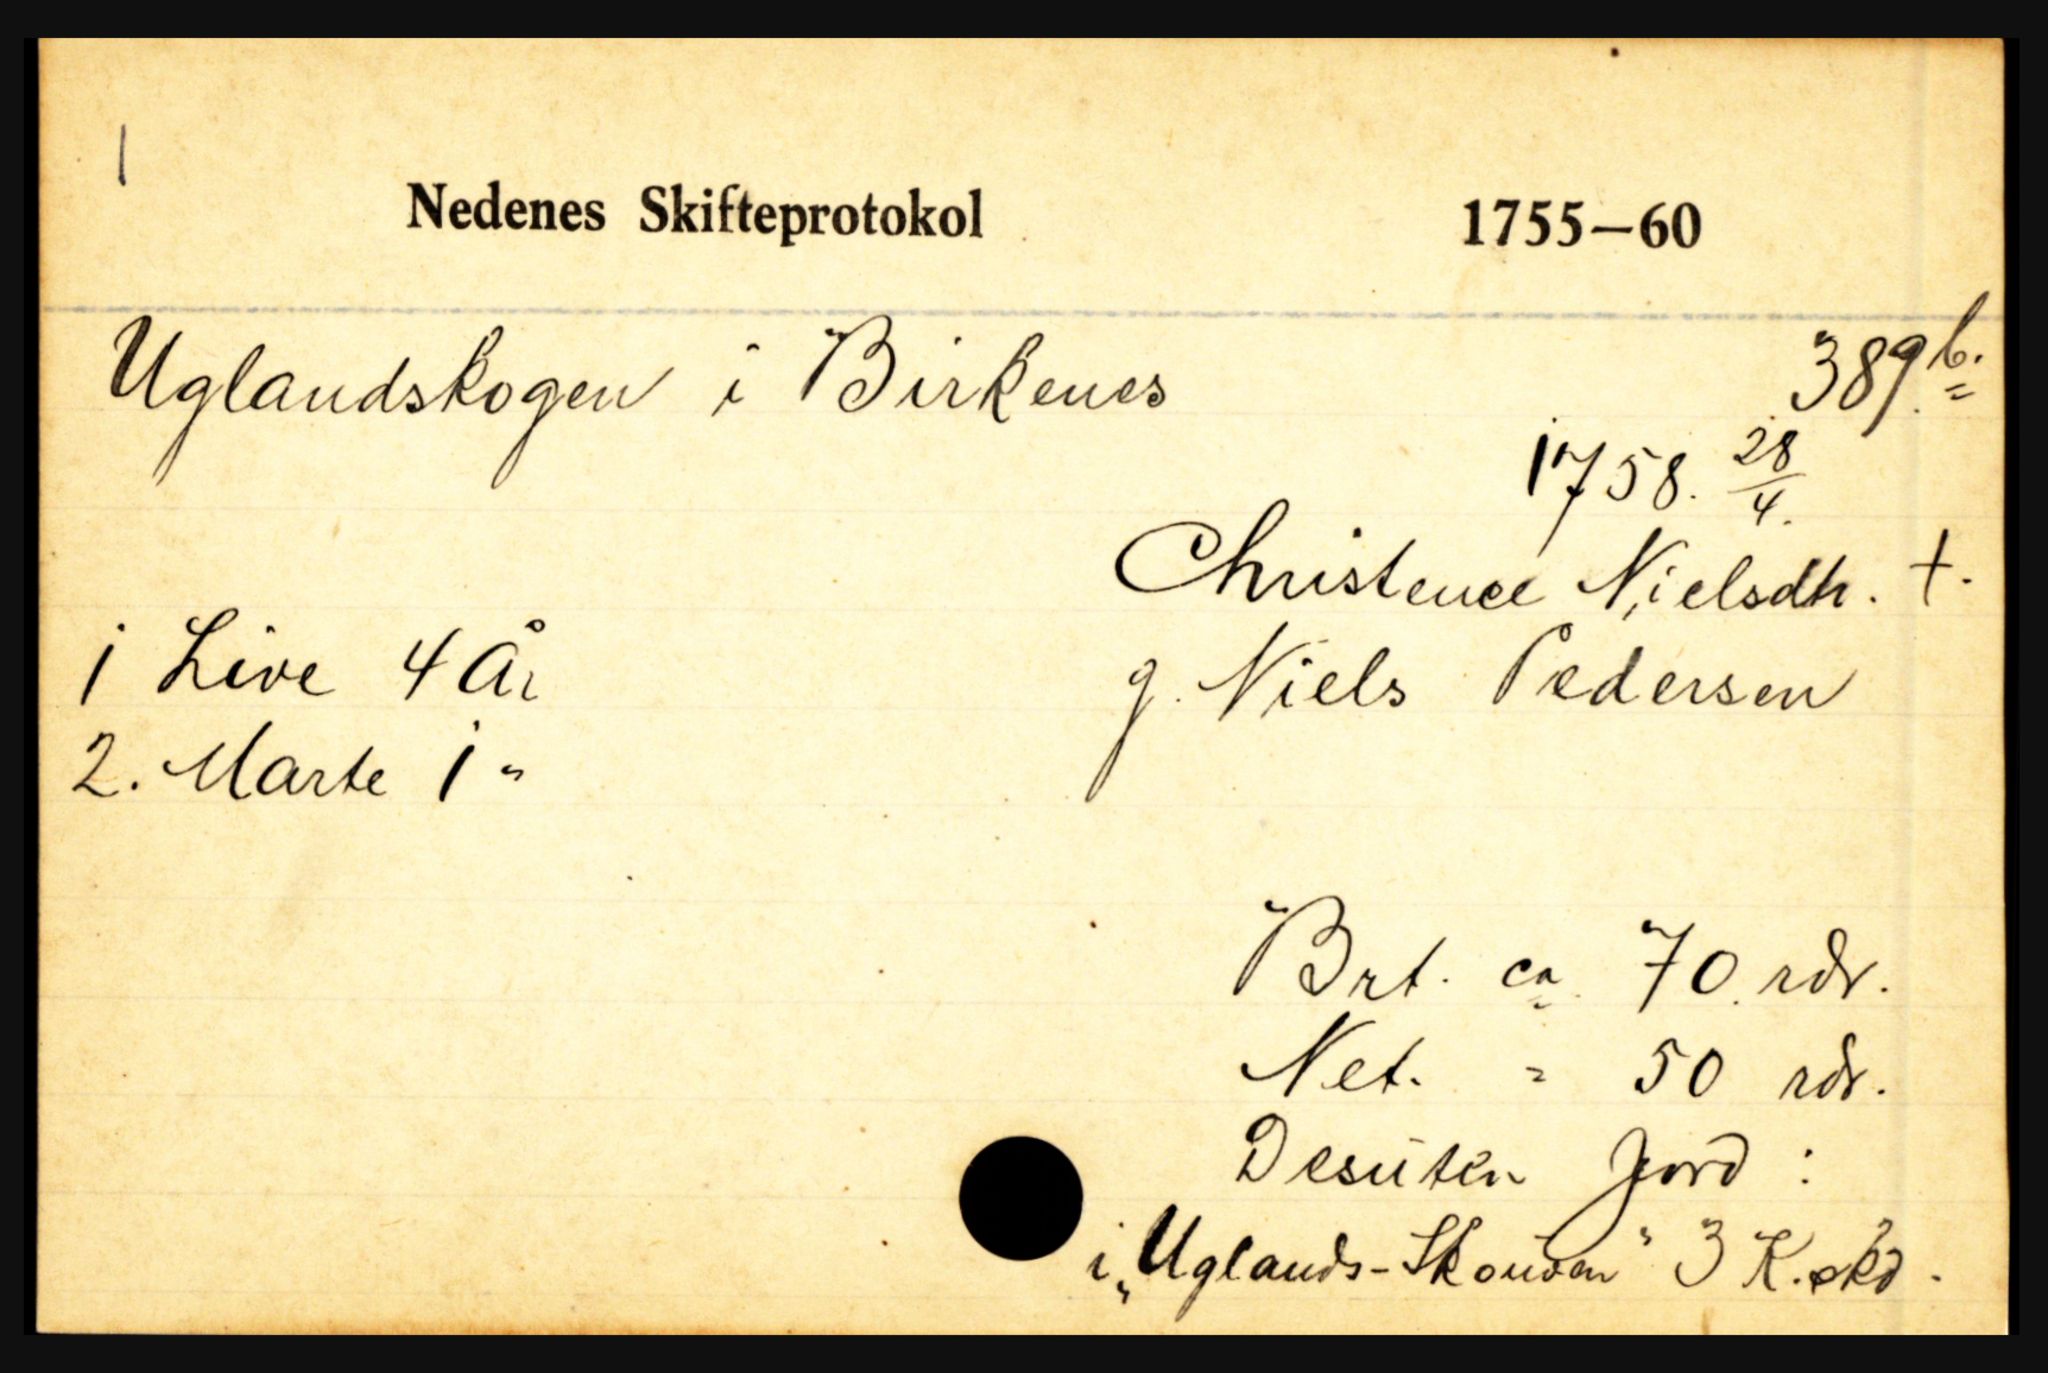 1
Nedenes Skifteprotokol 1755—60
Uglandskogen i Birkenes 389 b.
1758. 28/4.
Christence Nielsdtr. †.
1 Live 4 År g. Niels Pedersen
2. Marte 1 "
Brt. ca. 70 rdr.
Net. " 50 rdr.
Desuten Jord :
i „Uglands-Skouven" 3 K. skd.